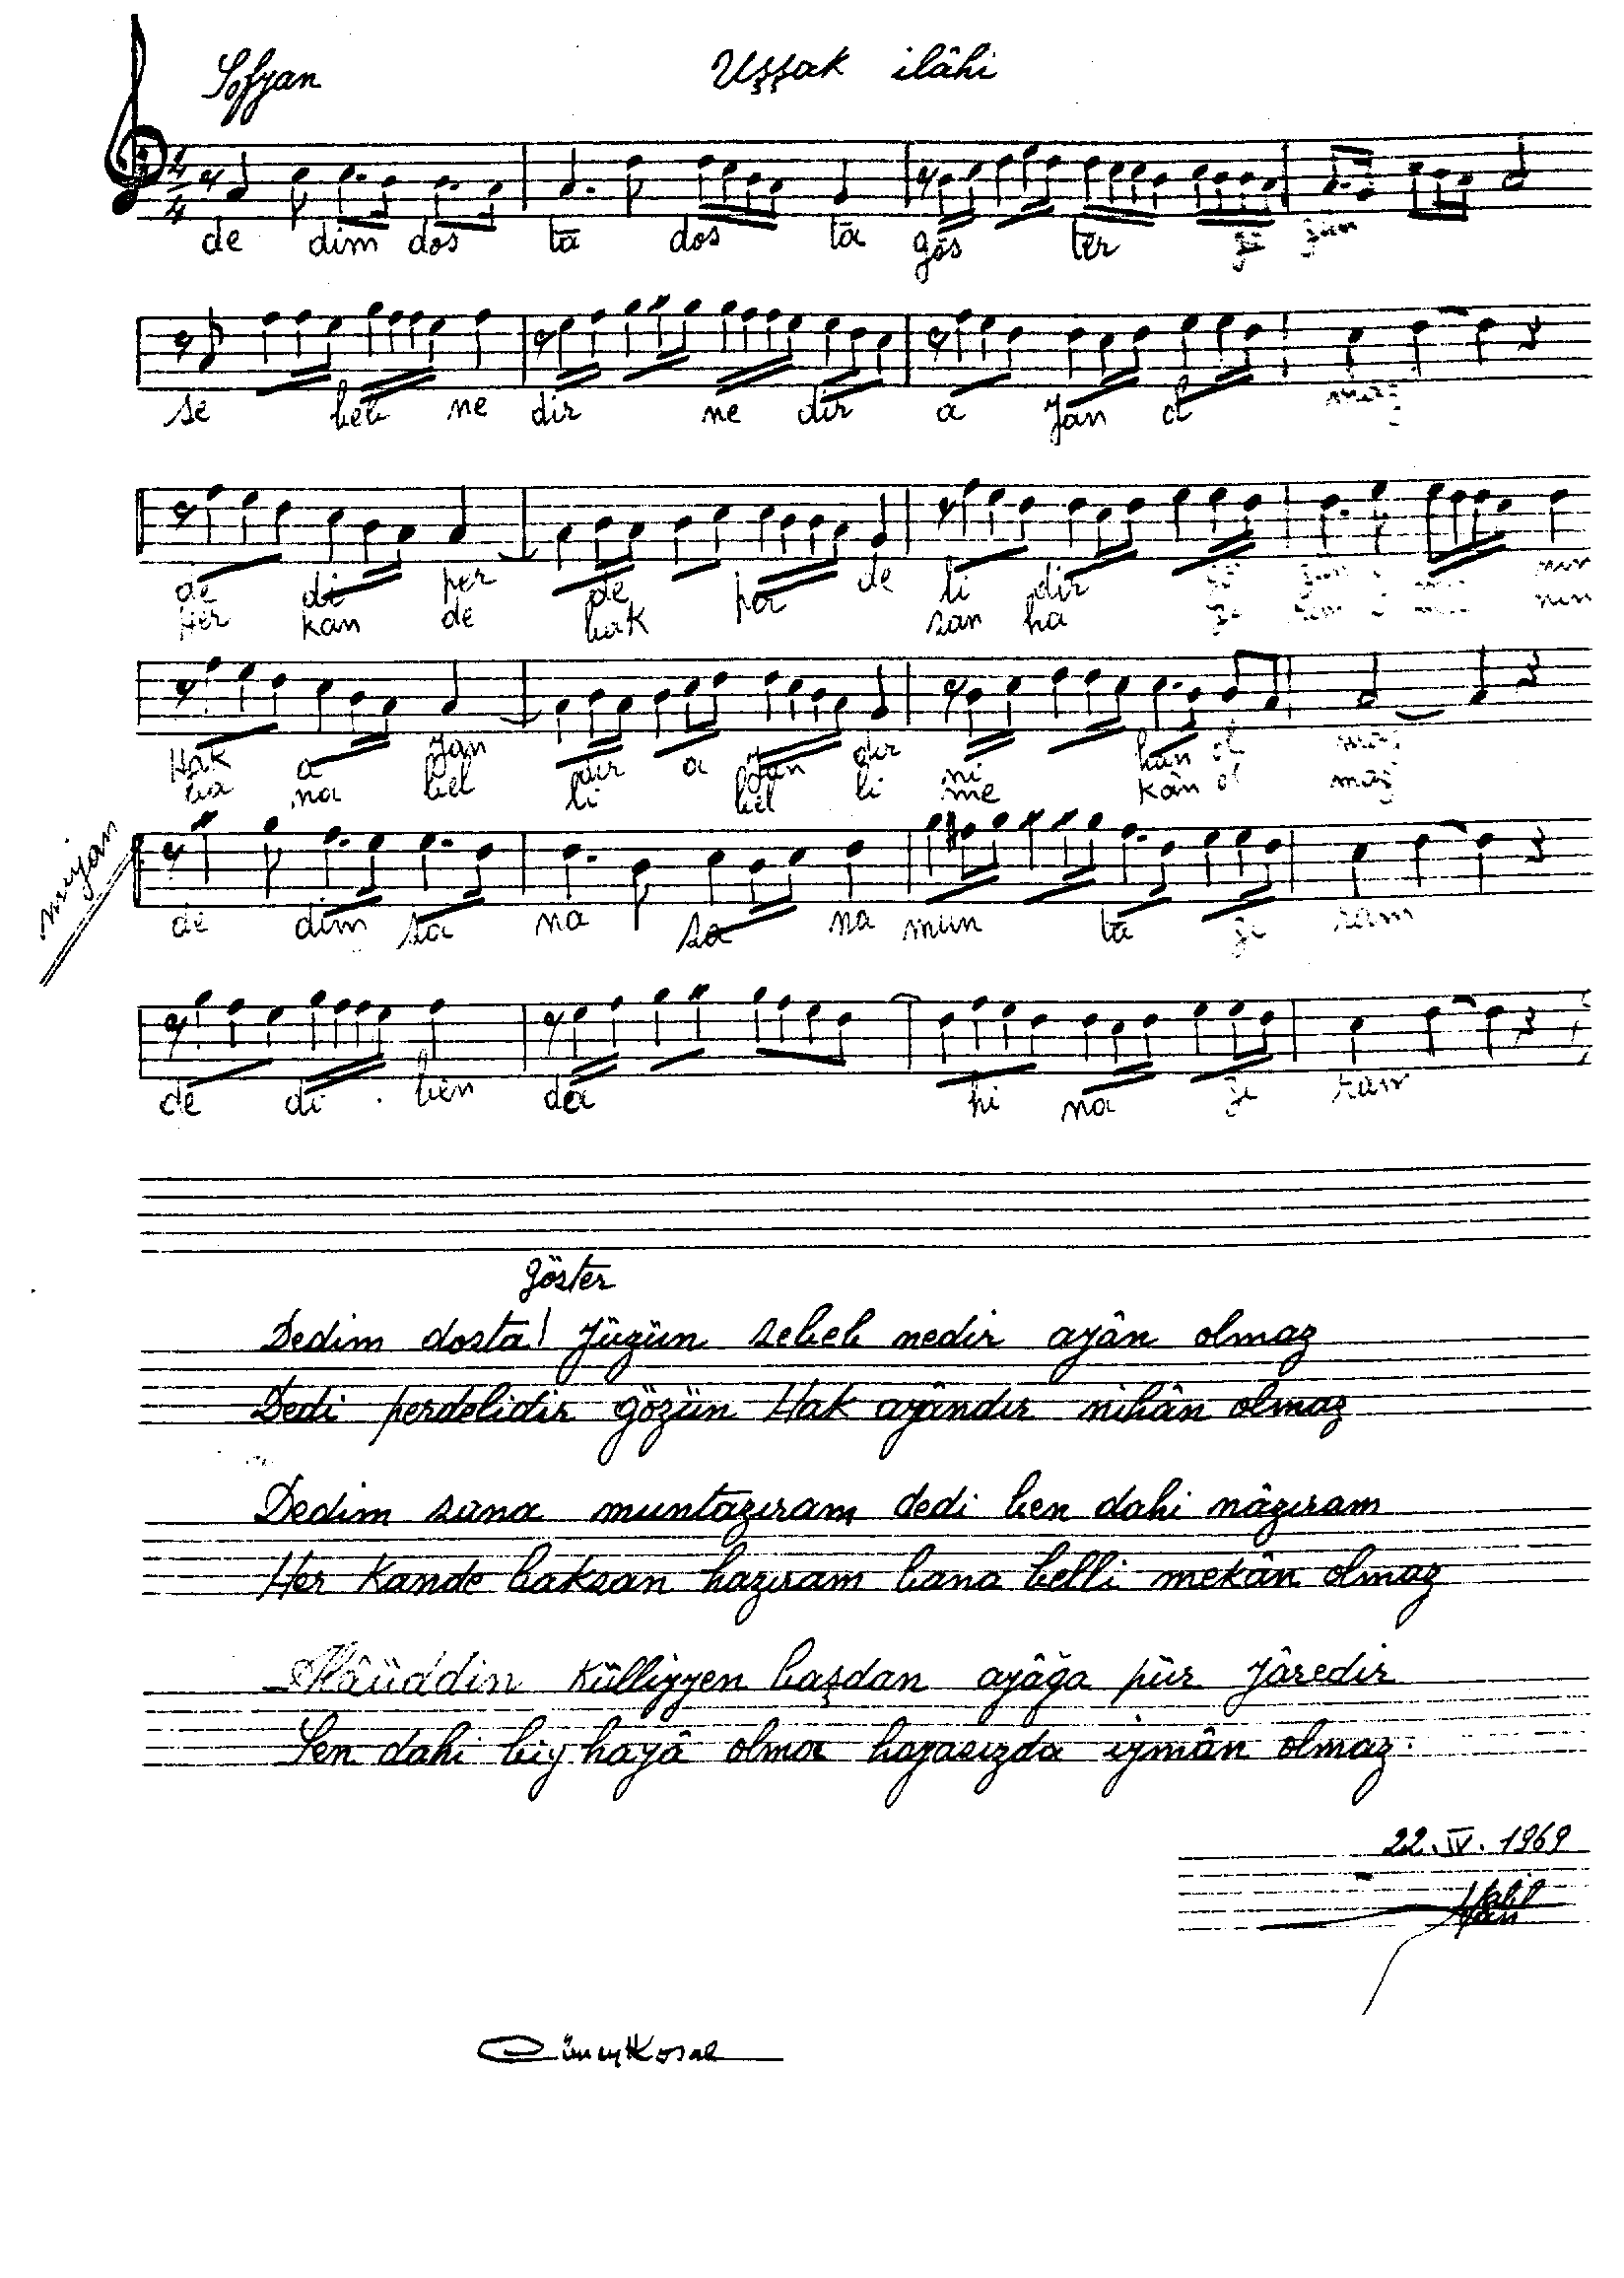 Sofyan Uşşak ilâhi
4/4
de dim dos tā dos tā gös ter yü zün
se beb ne dir ne dir a yan ol maz
de di per de per de li dir gö zün
Her kan de bak san ha zi ram
Hak a yan dır a yan dır ni hân ol maz
ba na bel li bel li me kân ol maz
miyan
de dim sa na sa na mun tā zi ram
de di ben da hi na zi ram
göster
Dedim dostā yüzün sebeb nedir ayân olmaz
Dedi perdelidir gözün Hak ayândır nihân olmaz
Dedim sana muntāzıram dedi ben dahi nâzıram
Her Kande baksan hazıram bana belli mekân olmaz
Alâüddin Külliyyen başdan ayâğa pür yâredir
Sen dahi biy hayâ olma hayasızda iymân olmaz.
22.IV.1969
Halil Can
Cüneyt Kosal